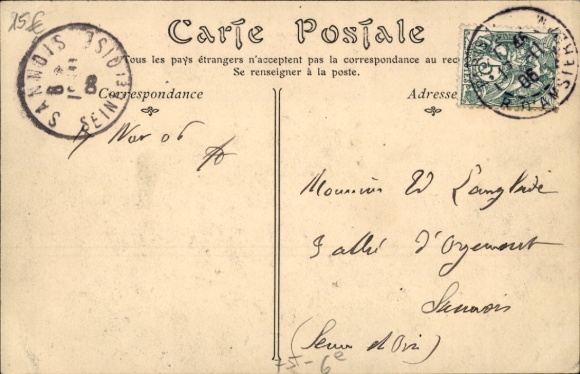 15€
Carte Postale
Tous les pays étrangers n'acceptent pas la correspondance au rec
Se renseigner à la poste.
Correspondance
Adresse
SANNOIS
SEINE ET OISE
8
06
R. D'AMSTERDAM
06
7 Nov 06
Monsieur W Langlade
3 allée d'Orgemont
Sannois
(Seine et Oise)
75-6e